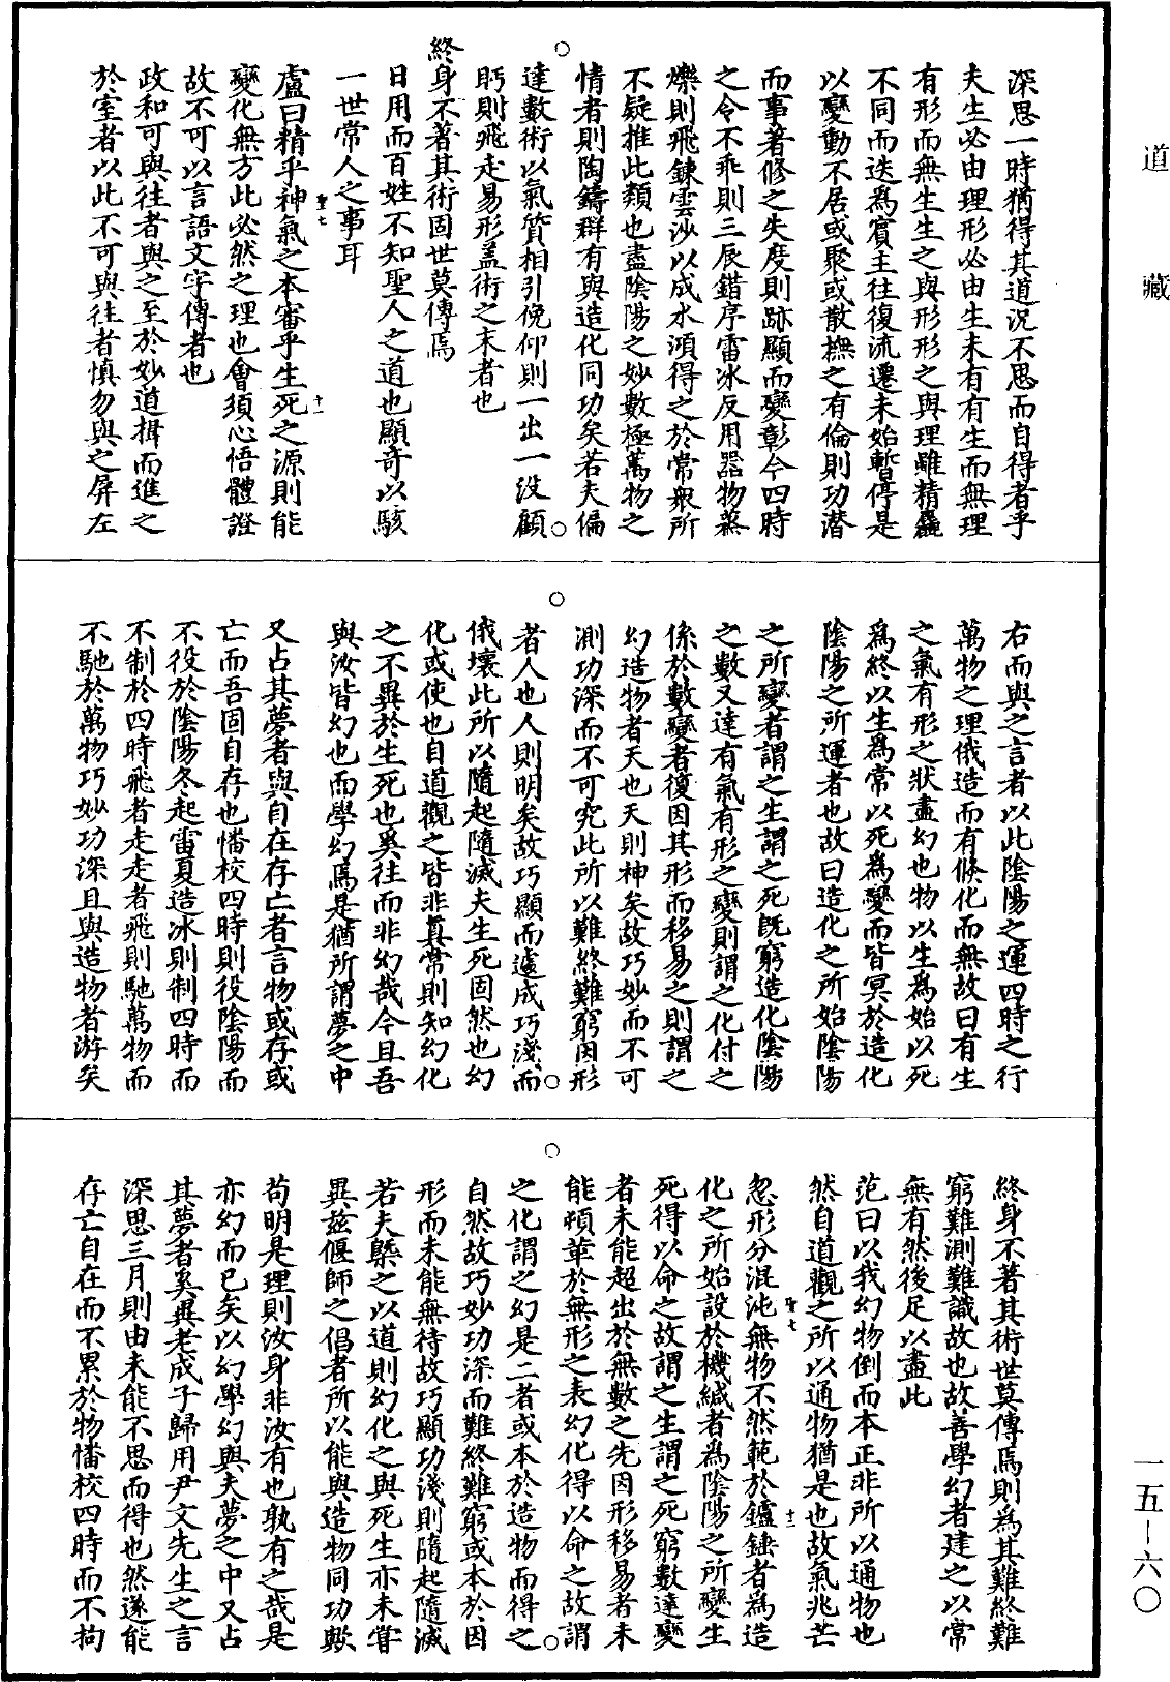 道藏
深思一時猶得其道况不思而自得者乎
夫生必由理形必由生未有有生而無理
有形而無生生之與形形之與理雖精麤
不同而迭爲賓主往復流遷未始暫停是
以變動不居或聚或散撫之有倫則功潜
而事著修之失度則跡顯而變彰今四時
之令不乖則三辰錯序雷冰反用器物蒸
爍則飛鍊雲沙以成水澒得之於常衆所
不疑推此類也盡陰陽之妙數極萬物之
情者則陶鑄群有與造化同功矣若夫偏
達數術以氣質相引俛仰則一出一没顧
眄則飛走易形盖術之末者也
終身不著其術固世莫傳焉
日用而百姓不知聖人之道也顯奇以駭
一世常人之事耳
盧曰精乎神氣之本審乎生死之源則能
變化無方此必然之理也會須心悟體證
故不可以言語文字傳者也
政和可與往者與之至於妙道揖而進之
於室者以此不可與往者慎勿與之屏左
聖七
十一
右而與之言者以此陰陽之運四時之行
萬物之理俄造而有倏化而無故曰有生
之氣有形之狀盡幻也物以生爲始以死
爲終以生爲常以死爲變而皆冥於造化
陰陽之所運者也故曰造化之所始陰陽
之所變者謂之生謂之死既窮造化陰陽
之數又達有氣有形之變則謂之化付之
係於數變者復因其形而移易之則謂之
幻造物者天也天則神矣故巧妙而不可
測功深而不可究此所以難終難窮因形
者人也人則明矣故巧顯而遽成巧淺而
俄壞此所以隨起隨滅夫生死固然也幻
化或使也自道觀之皆非真常則知幻化
之不異於生死也奚往而非幻哉今且吾
與汝皆幻也而學幻焉是猶所謂夢之中
又占其夢者與自在存亡者言物或存或
亡而吾固自存也憣校四時則役陰陽而
不役於陰陽冬起雷夏造冰則制四時而
不制於四時飛者走走者飛則馳萬物而
不馳於萬物巧妙功深且與造物者游矣
終身不著其術世莫傳焉則爲其難終難
窮難測難識故也故善學幻者建之以常
無有然後足以盡此
范曰以我幻物倒而本正非所以通物也
然自道觀之所以通物猶是也故氣兆芒
忽形分混沌無物不然範於鑪錘者爲造
化之所始設於機緘者為陰陽之所變生
死得以命之故謂之生謂之死窮數達變
者未能超出於無數之先因形移易者未
能頓革於無形之表幻化得以命之故謂
之化謂之幻是二者或本於造物而得之
自然故巧妙功深而難終難窮或本於因
形而未能無待故巧顯功淺則隨起隨滅
若夫槩之以道則幻化之與死生亦未甞
異兹偃師之倡者所以能與造物同功歟
苟明是理則汝身非汝有也孰有之哉是
亦幻而已矣以幻學幻與夫夢之中又占
其夢者奚異老成子歸用尹文先生之言
深思三月則由未能不思而得也然遂能
存亡自在而不累於物憣校四時而不拘
聖七
十二
一五—六〇